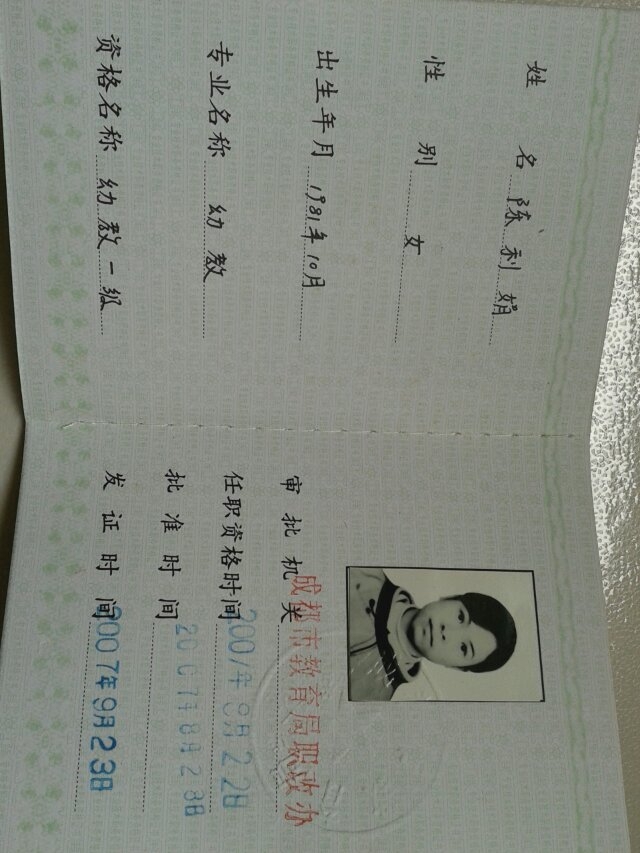 姓名 陈利娟
性别 女
出生年月 1981年10月
专业名称 幼教
资格名称 幼教一级
审批机关 成都市教育局职改办
任职资格时间 2007年8月22日
批准时间 2007年8月28日
发证时间 2007年9月23日